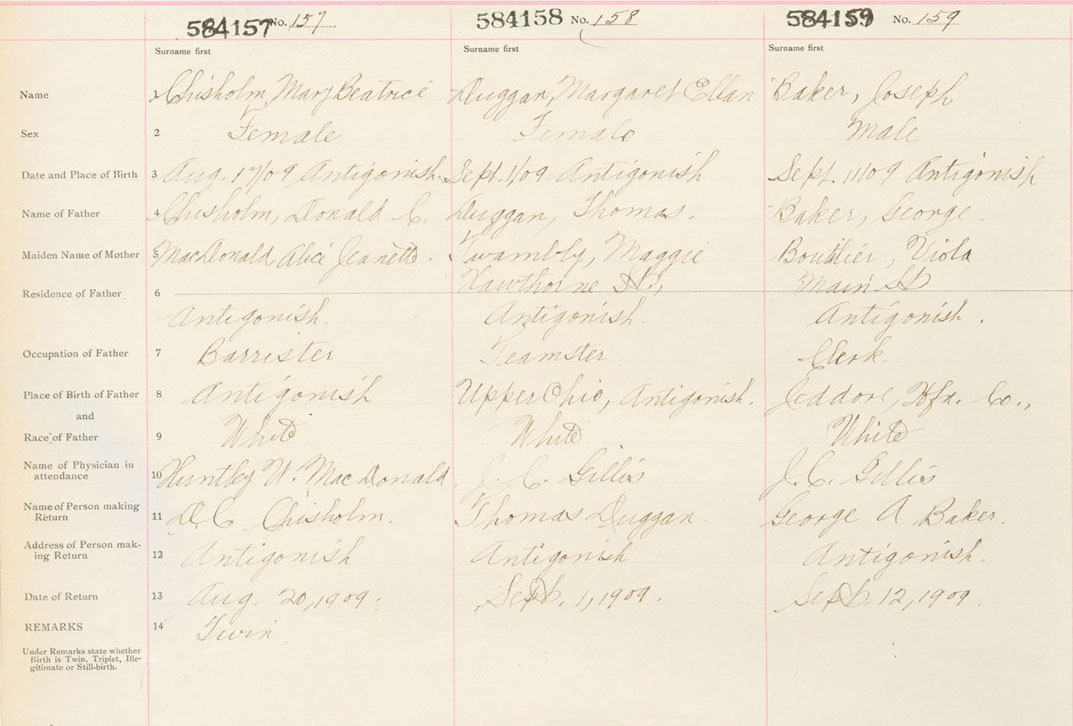 584157 No. 157 584158 No. 158 584159 No. 159
Surname first Surname first Surname first
Name 1 Chisholm, Mary Beatrice Duggan, Margaret Ellan Baker, Joseph
Sex 2 Female Female Male
Date and Place of Birth 3 Aug. 17/09 Antigonish. Sept. 1/09 Antigonish Sept. 11/09 Antigonish
Name of Father 4 Chisholm, Donald C. Duggan, Thomas. Baker, George.
Maiden Name of Mother 5 MacDonald Alice Jeanette. Twambly, Maggie Boutlier, Viola
Hawthorne St, Main St
Residence of Father 6
Antigonish. Antigonish. Antigonish.
Occupation of Father 7 Barrister Teamster Clerk.
Place of Birth of Father 8 Antigonish Upper Ohio, Antigonish. Jeddore, Hfx. Co.,
and
Race of Father 9 White White White
Name of Physician in
attendance 10 Huntley W. MacDonald J. C. Gillis J. C. Gillis
Name of Person making
Return 11 D. C Chisholm. Thomas Duggan. George A Baker.
Address of Person mak-
ing Return 12 Antigonish Antigonish Antigonish.
Date of Return 13 Aug. 20, 1909. Sept. 1, 1909. Sept. 12, 1909
REMARKS 14 Twin
Under Remarks state whether
Birth is Twin, Triplet, Ille-
gitimate or Still-birth.